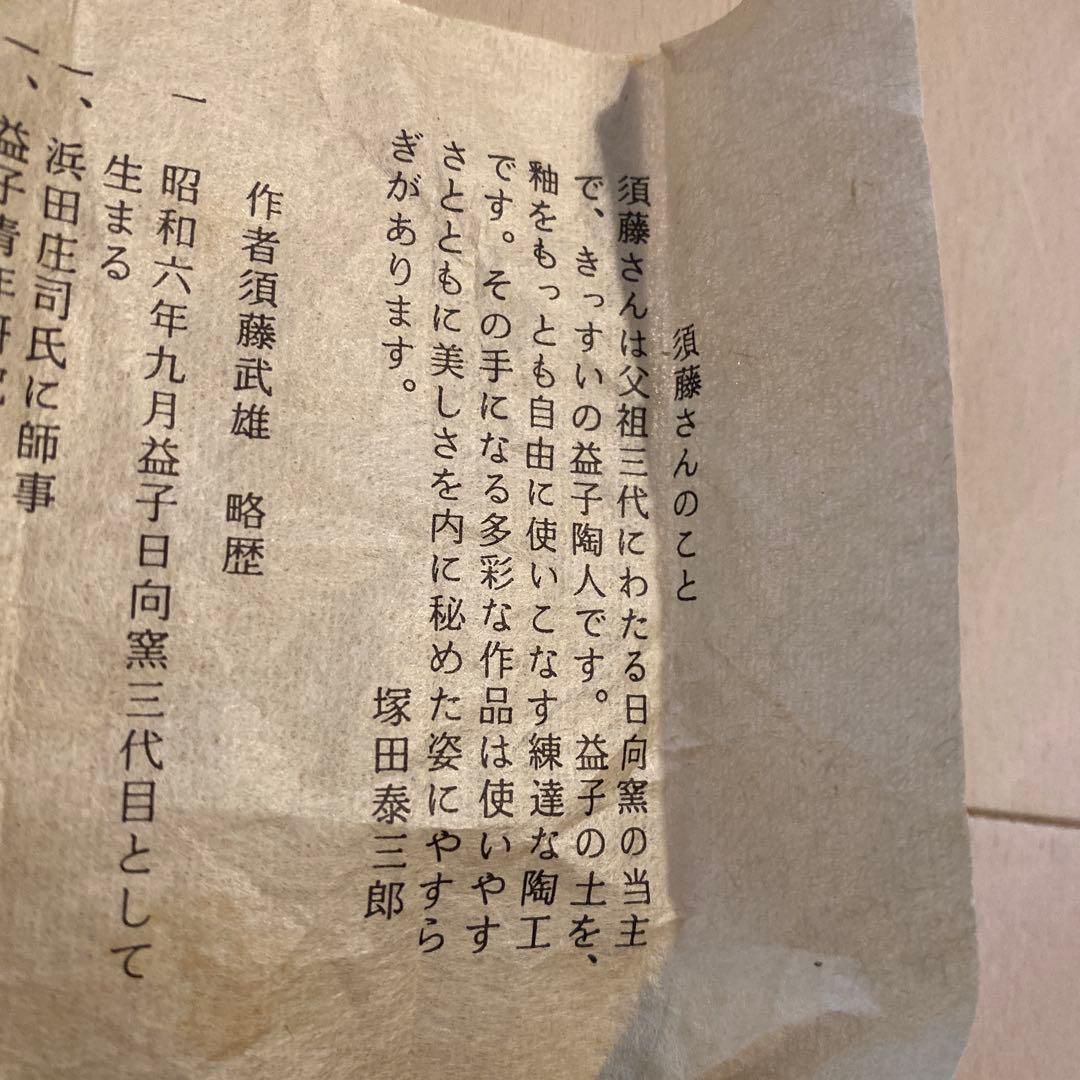 須藤さんのこと
須藤さんは父祖三代にわたる日向窯の当主
で、きっすいの益子陶人です。益子の土を、
釉をもっとも自由に使いこなす練達な陶工
です。その手になる多彩な作品は使いやす
さとともに美しさを内に秘めた姿にやすら
ぎがあります。
塚田泰三郎
作者須藤武雄 略歴
一 昭和六年九月益子日向窯三代目として
生まる
一、浜田庄司氏に師事
一、益子青年